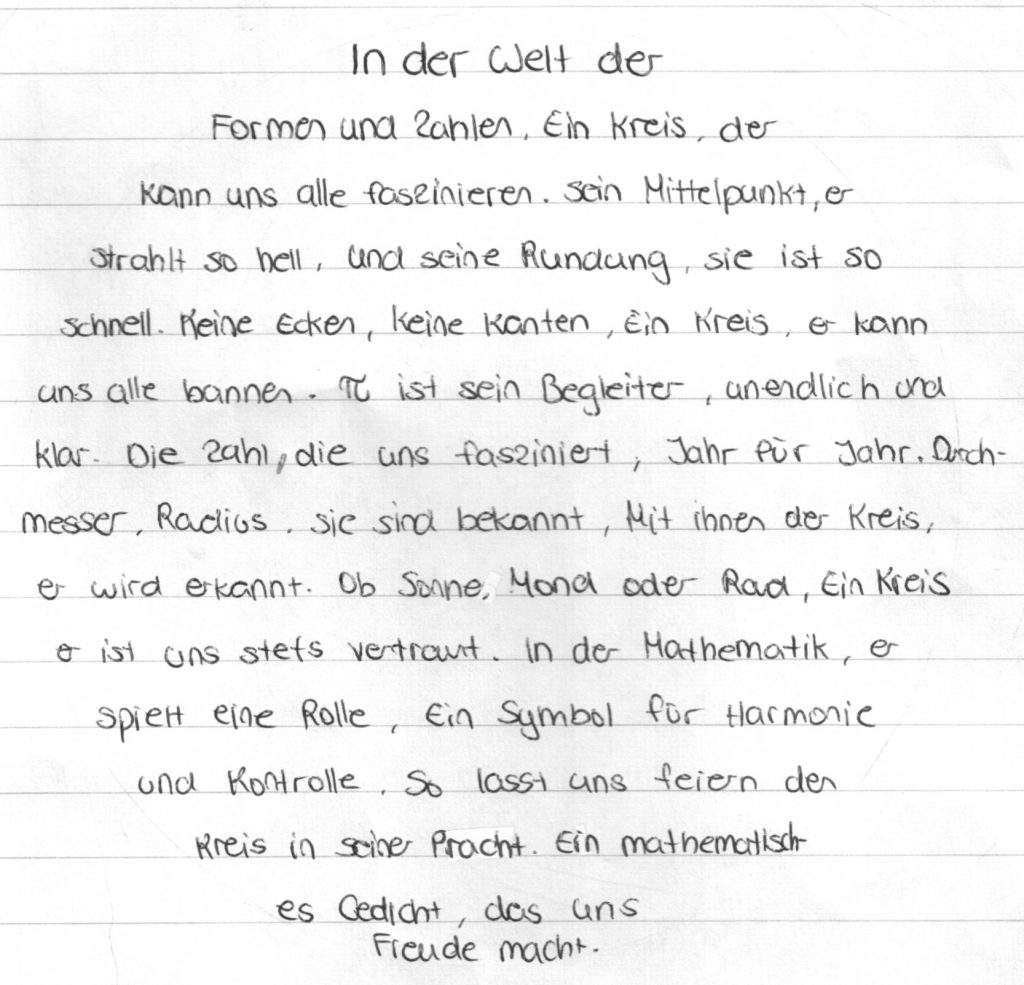 In der Welt der
Formen und Zahlen, Ein Kreis, der
kann uns alle faszinieren. Sein Mittelpunkt, er
strahlt so hell, und seine Rundung, sie ist so
schnell. Keine Ecken, keine Kanten, Ein Kreis, er kann
uns alle bannen. π ist sein Begleiter, unendlich und
klar. Die Zahl, die uns fasziniert, Jahr für Jahr. Durch-
messer, Radius, sie sind bekannt, Mit ihnen der Kreis,
er wird erkannt. Ob Sonne, Mond oder Rad, Ein Kreis
er ist uns stets vertraut. In der Mathematik, er
spielt eine Rolle, Ein Symbol für Harmonie
und Kontrolle. So lasst uns feiern den
Kreis in seiner Pracht. Ein mathematisch-
es Gedicht, das uns
Freude macht.